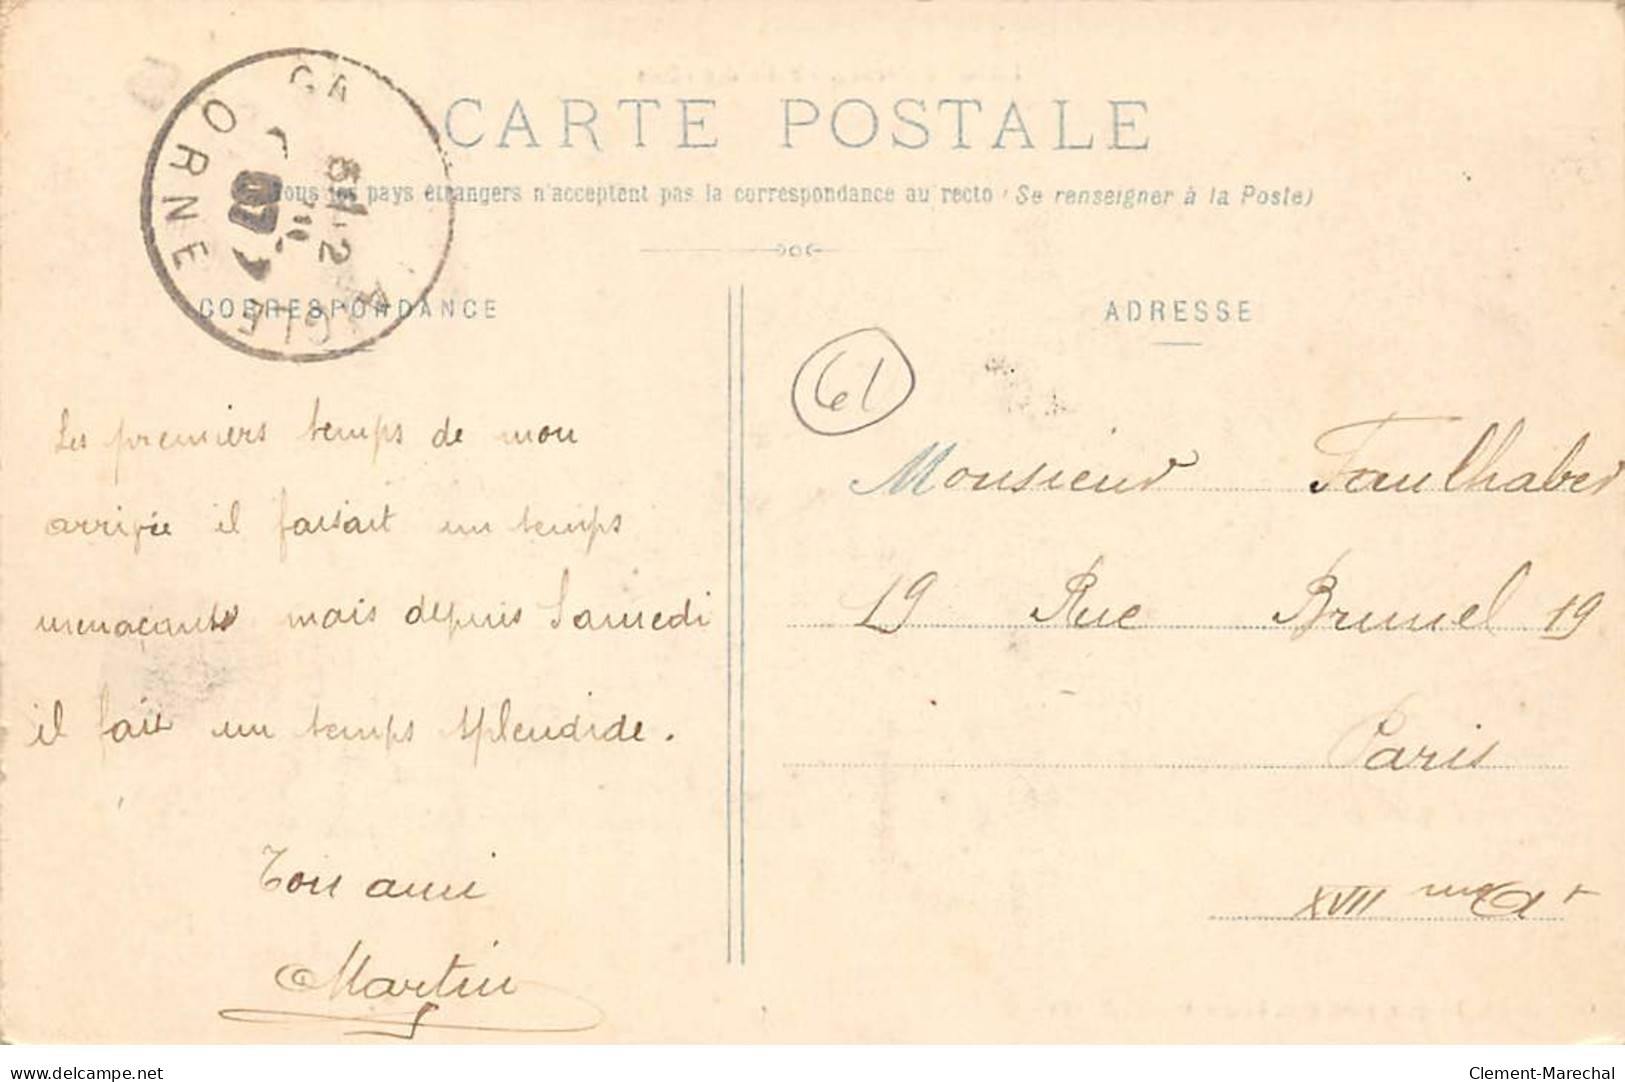 CARTE POSTALE
Tous les pays étrangers n'acceptent pas la correspondance au recto (Se renseigner à la Poste)
ORNE
07
CORRESPONDANCE
ADRESSE
61
Les premiers temps de mon
arrivée il faisait un temps
menaçants mais depuis Samedi
il fait un temps splendide.
Ton ami
Martin
Monsieur Faulhaber
19 Rue Brunel 19
Paris
XVII me Art
delcampe.net
Clement-Marechal